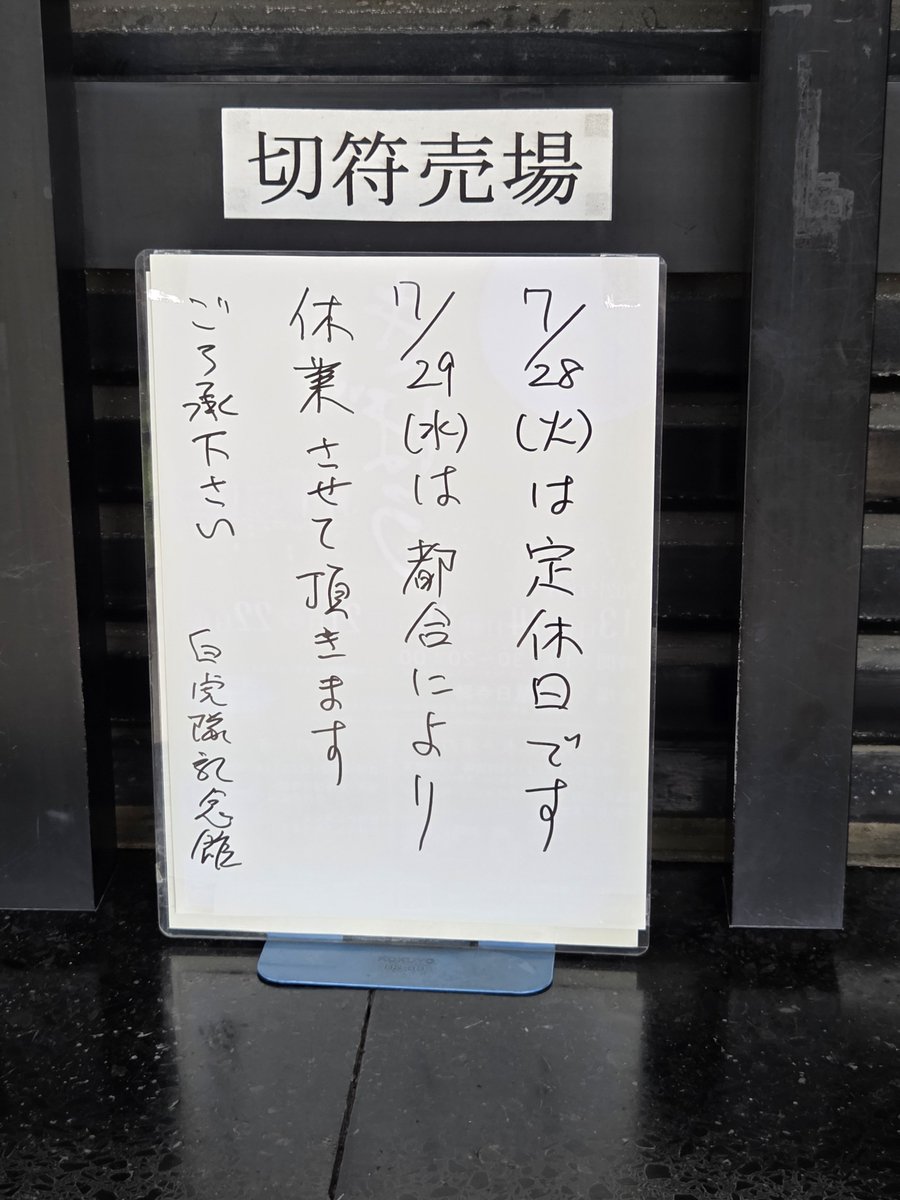 切符売場
7/28(火)は定休日です
7/29(水)は都合により
休業させて頂きます
ごう承下さい 白虎隊記念館